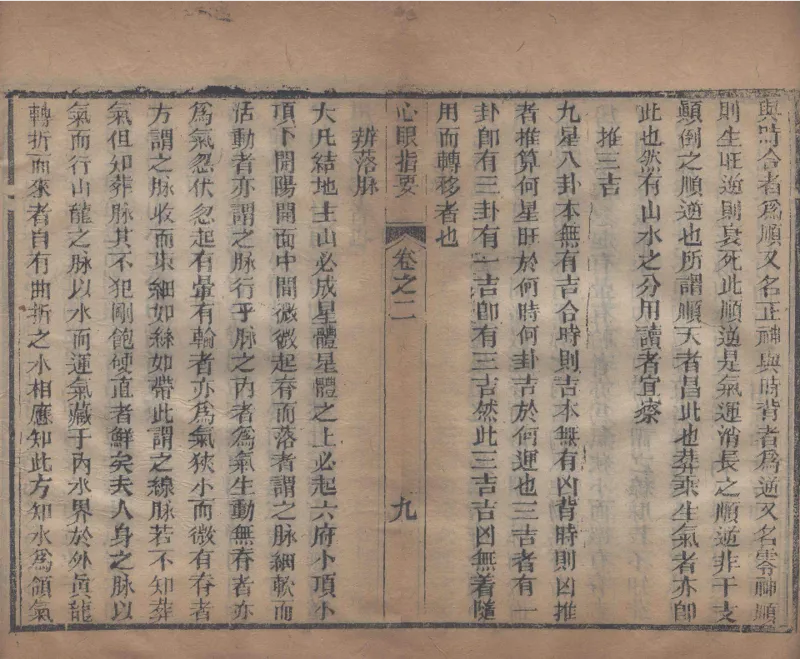 與時合者爲順又名正神與時背者爲逆又名零神順
則生旺逆則衰死此順逆是氣運消長之順逆非干支
顛倒之順逆也所謂順天者昌此也葬乘生氣者亦卽
此也然有山水之分用讀者宜察
推三吉
九星八卦本無有吉合時則吉本無有凶背時則凶推
者推算何星旺於何時何卦吉於何運也三吉者有一
卦卽有三卦有一吉卽有三吉然此三吉吉凶無着隨
用而轉移者也
心眼指要
卷之二
九
辨落脉
大凡結地主山必成星體星體之上必起六府小頂小
項下開陽開面中間微微起脊而落者謂之脉細軟而
活動者亦謂之脉行乎脉之內者爲氣生動無脊者亦
爲氣忽伏忽起有暈有輪者亦爲氣狹小而微有脊者
方謂之脉收而束細如絲如帶此謂之線脉若不知葬
氣但知葬脉其不犯剛飽硬直者鮮矣夫人身之脉以
氣而行山龍之脉以水而運氣藏于內水界於外眞龍
轉折而來者自有曲折之水相應知此方知水爲領氣